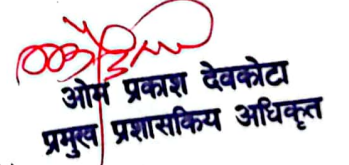 ओम प्रकाश देवकोटा
प्रमुख प्रशासकिय अधिकृत